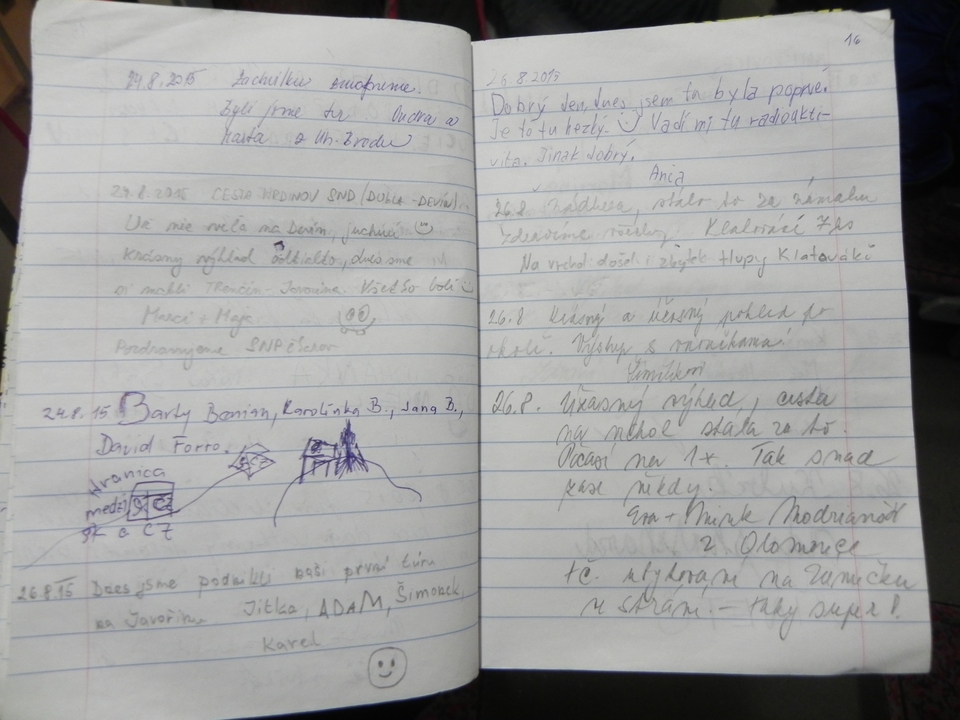 24.8.2015
Byli jsme tu Ondra a
z Uh. Brodu
24.8.2015 CESTA HRDINOV SNP (DUKLA-DEVÍN)
Už nie veľa na Devín, juchuú
Krásny výhľad odtialto, dnes sme
si makli Trenčín - Javorina. Všetko bolí
Maja
Pozdravujeme SNPčkárov
24.8.15 Barty Karolínka B., Jana B.,
David Forro.
Hranica
medzi SK CZ
SK a CZ
26.8.15 Dnes jsme podnikli naši první túru
na Javořinu Jitka, ADAM, Šimonek,
Karel
16
26.8.2015
Dobrý den, dnes jsem tu byla poprvé.
Je to tu hezký. Vadí mi tu radioakti-
vita. Jinak dobrý.
26.8 Nádhera, stálo to za námahu
Zdravíme všechny
Na vrchol došel i zbytek tlupy Klatováků
26.8 Krásný a úžasný pohled po
okolí. Výstup s
26.8. Úžasný výhled, cesta
na vrchol stála za to.
Počasí na 1x. Tak snad
zase někdy.
Eva +
z Olomouce
t.č. ubytovaní na Zámečku
ve Strání. – taky super!